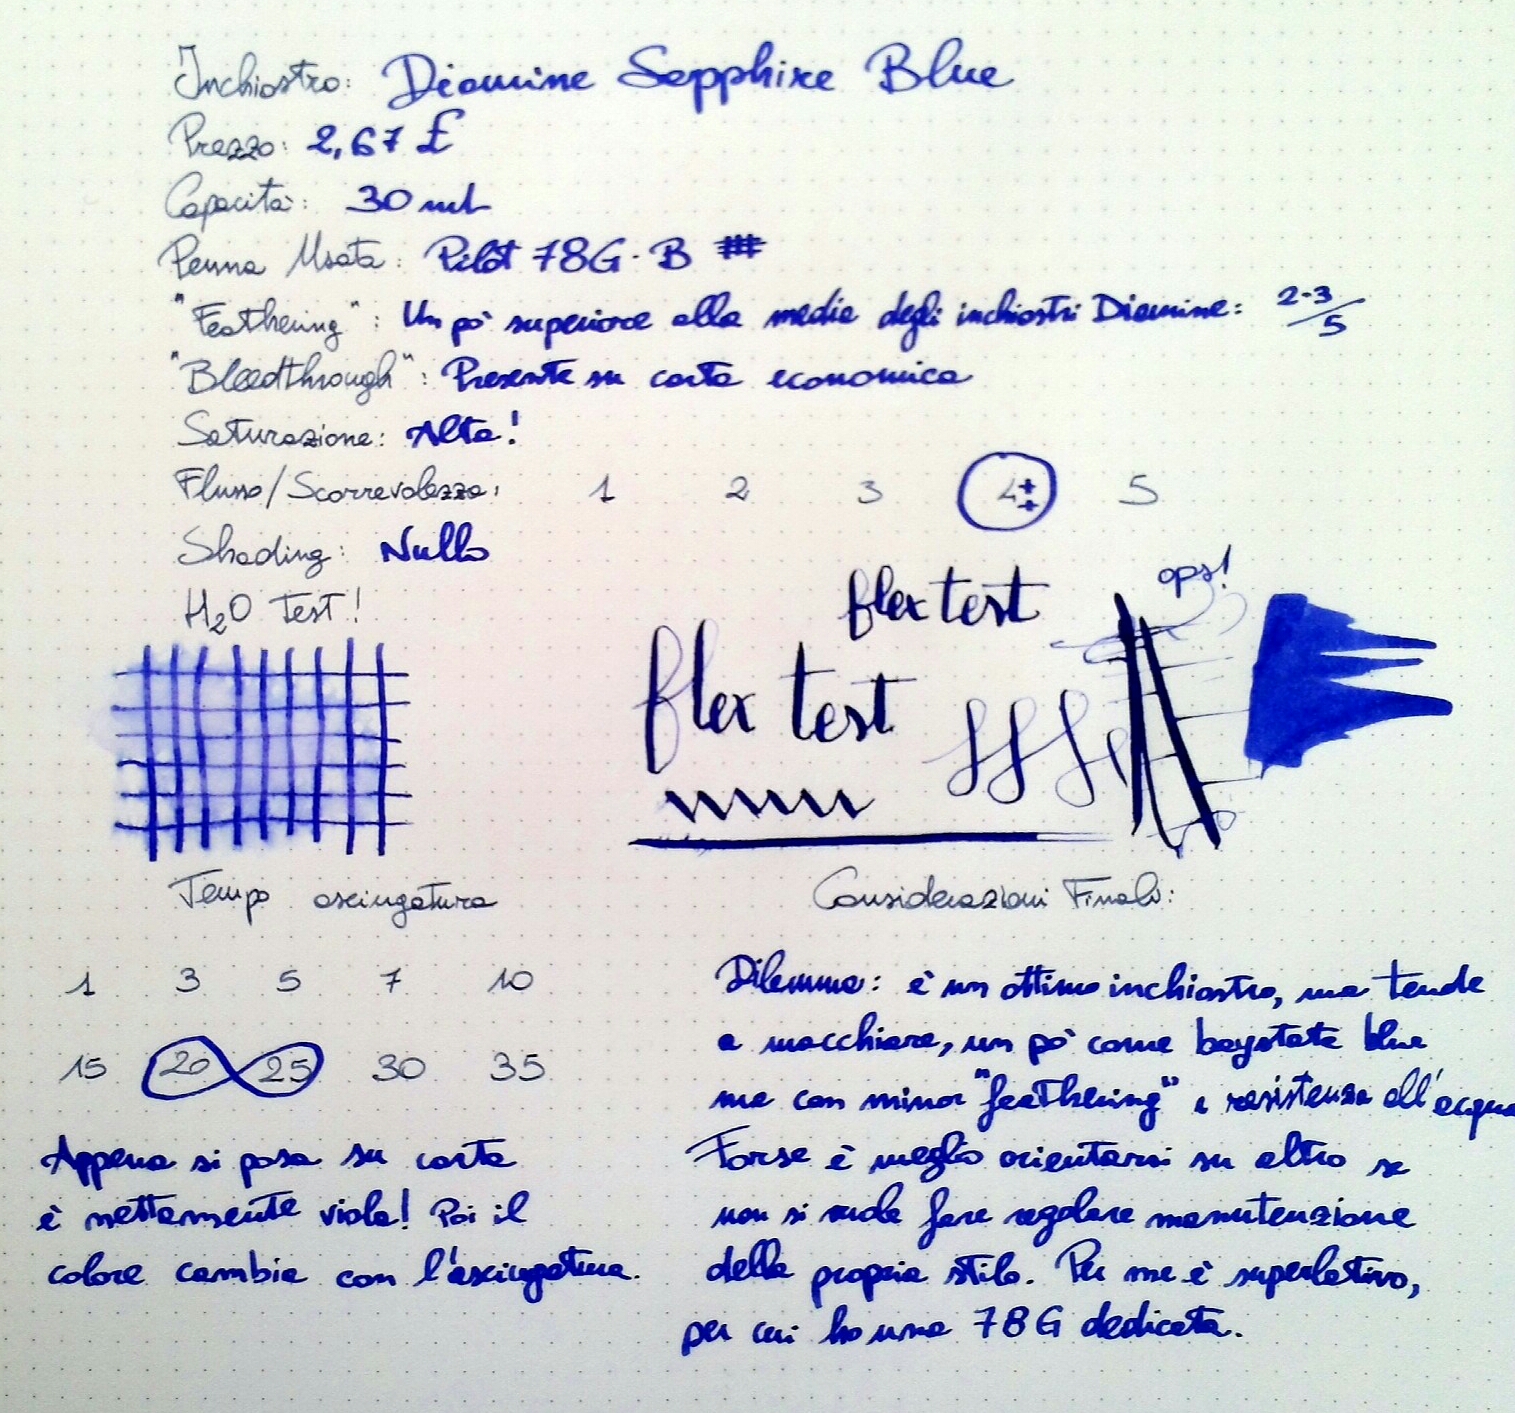 Inchiostro: Diamine Sapphire Blue
Prezzo: 2,67 £
Capacità: 30 ml
Penna Usata: Pilot 78G - B
"Feathering": Un pò superiore alla media degli inchiostri Diamine: 2-3/5
"Bleedthrough": Presente su carta economica
Saturazione: Alta!
Flusso/Scorrevolezza: 1 2 3 4++ 5
Shading: Nullo
H₂O Test!
ops!
flex test
flex test
Tempo asciugatura
1 3 5 7 10
15 20 25 30 35
Appena si posa su carta
è nettamente viola! Poi il
colore cambia con l'asciugatura.
Considerazioni Finali:
Dilemma: è un ottimo inchiostro, ma tende
a macchiare, un pò come baystate blue
ma con minor "feathering" e resistenza all'acqua
Forse è meglio orientarsi su altro se
non si vuole fare regolare manutenzione
della propria stilo. Per me è superlativo,
per cui ho una 78G dedicata.